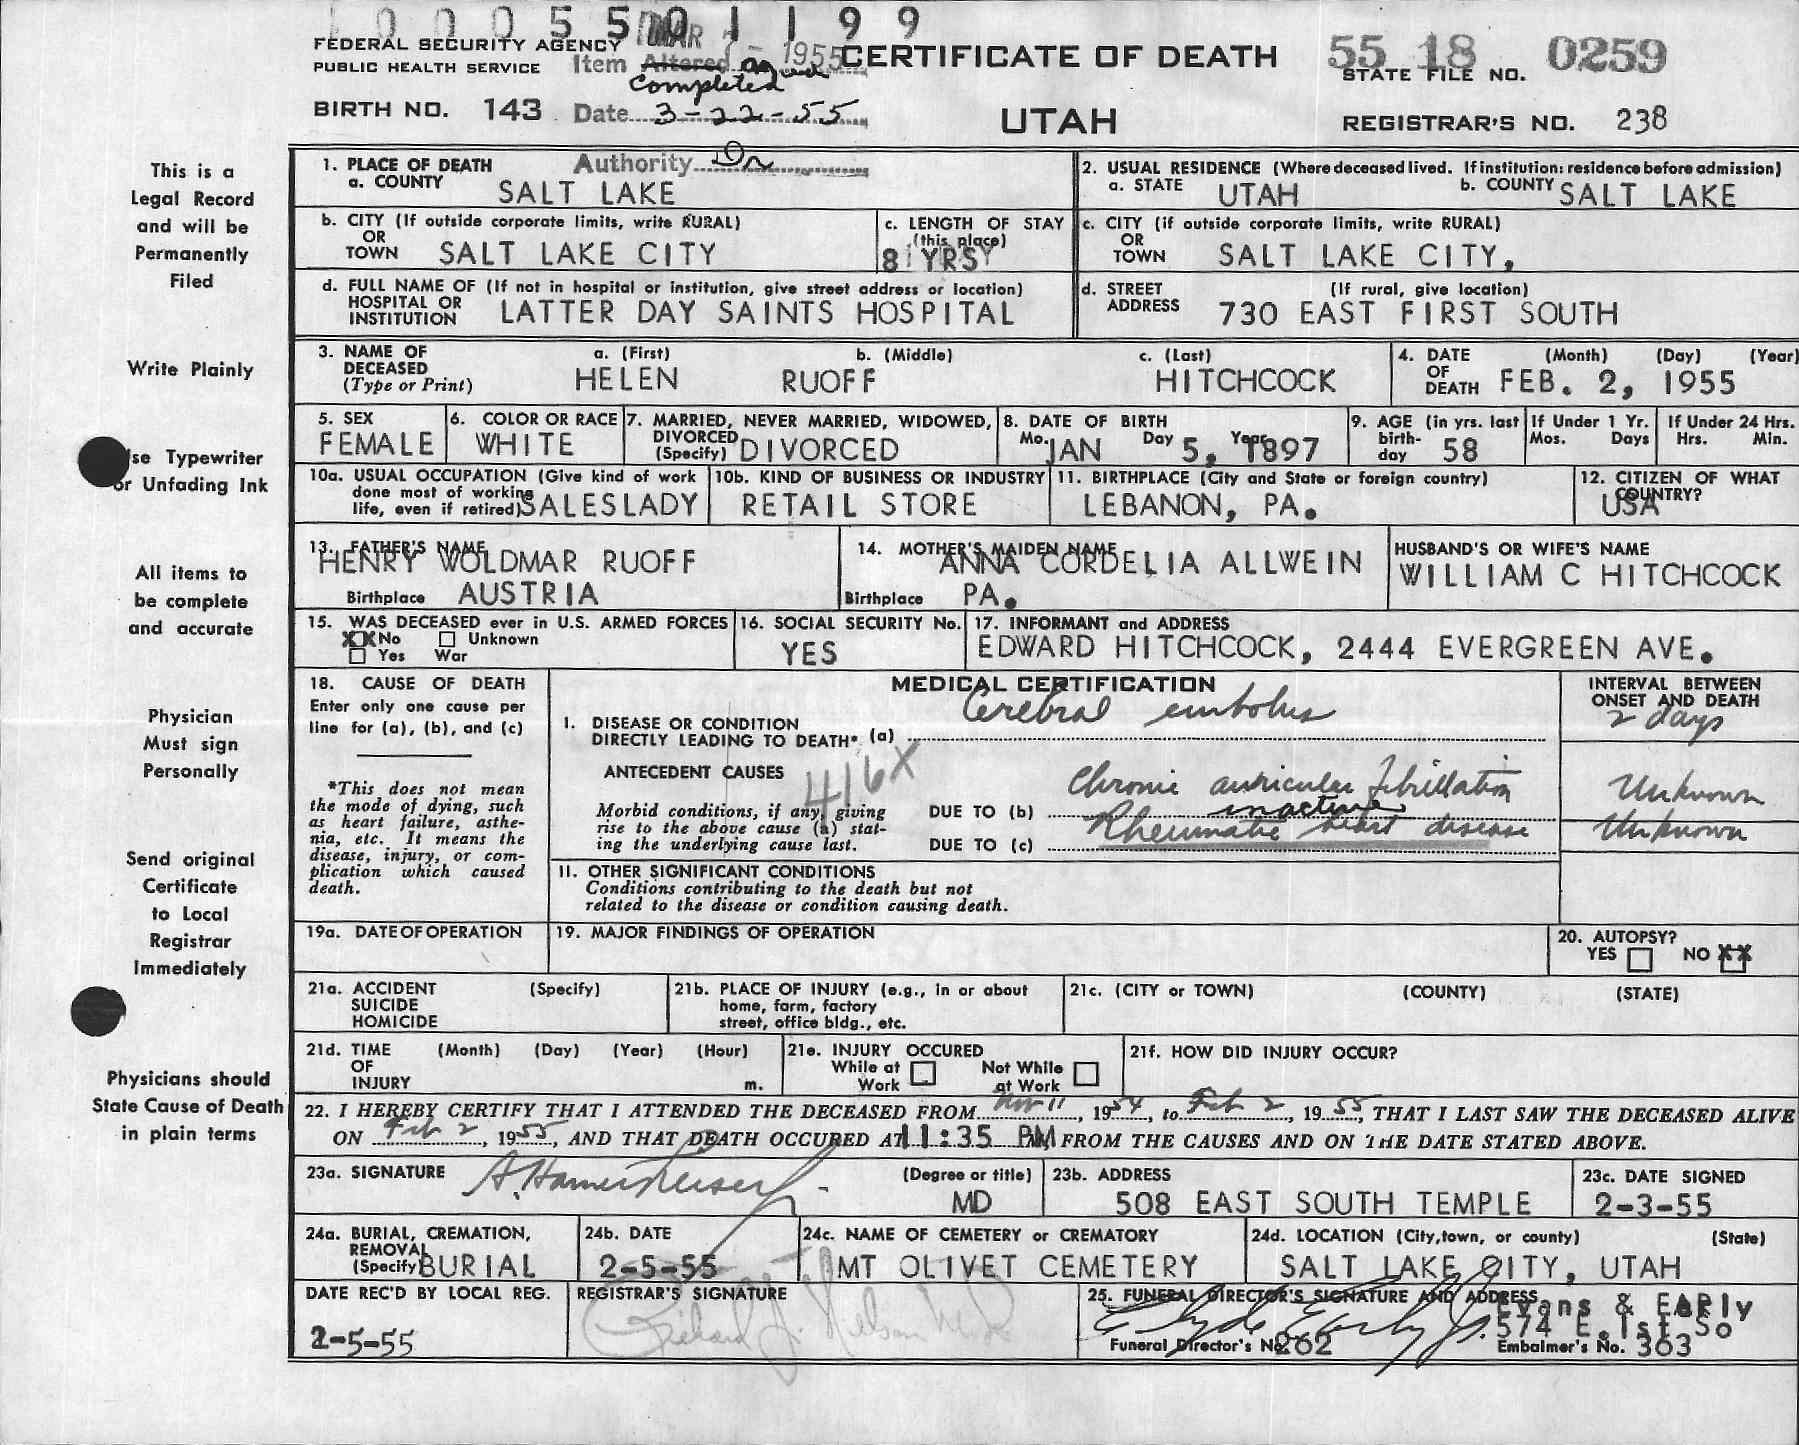 0 0 0 5 5 0 1 1 9 9
FEDERAL SECURITY AGENCY
PUBLIC HEALTH SERVICE
MAR 1955
Item Altered
Completed
CERTIFICATE OF DEATH
UTAH
55 18 0259
STATE FILE NO.
BIRTH NO. 143
Date 3-22-55
REGISTRAR'S NO. 238
Authority Dr
This is a
Legal Record
and will be
Permanently
Filed
Write Plainly
se Typewriter
or Unfading Ink
All items to
be complete
and accurate
Physician
Must sign
Personally
Send original
Certificate
to Local
Registrar
Immediately
Physicians should
State Cause of Death
in plain terms
1. PLACE OF DEATH
a. COUNTY SALT LAKE
2. USUAL RESIDENCE (Where deceased lived. If institution: residence before admission)
a. STATE UTAH b. COUNTY SALT LAKE
b. CITY (If outside corporate limits, write RURAL)
OR
TOWN SALT LAKE CITY
c. LENGTH OF STAY
(this place)
8 YRS
c. CITY (if outside corporate limits, write RURAL)
OR
TOWN SALT LAKE CITY,
d. FULL NAME OF (If not in hospital or institution, give street address or location)
HOSPITAL OR
INSTITUTION LATTER DAY SAINTS HOSPITAL
d. STREET (If rural, give location)
ADDRESS 730 EAST FIRST SOUTH
3. NAME OF
DECEASED
(Type or Print)
a. (First) b. (Middle) c. (Last)
HELEN RUOFF HITCHCOCK
4. DATE (Month) (Day) (Year)
OF
DEATH FEB. 2, 1955
5. SEX
FEMALE
6. COLOR OR RACE
WHITE
7. MARRIED, NEVER MARRIED, WIDOWED,
DIVORCED
(Specify) DIVORCED
8. DATE OF BIRTH
Mo. JAN Day 5, Year 1897
9. AGE (in yrs. last
birth-
day 58
If Under 1 Yr.
Mos. Days
If Under 24 Hrs.
Hrs. Min.
10a. USUAL OCCUPATION (Give kind of work
done most of working
life, even if retired) SALESLADY
10b. KIND OF BUSINESS OR INDUSTRY
RETAIL STORE
11. BIRTHPLACE (City and State or foreign country)
LEBANON, PA.
12. CITIZEN OF WHAT
COUNTRY?
USA
13. FATHER'S NAME
HENRY WOLDMAR RUOFF
Birthplace AUSTRIA
14. MOTHER'S MAIDEN NAME
ANNA CORDELIA ALLWEIN
Birthplace PA.
HUSBAND'S OR WIFE'S NAME
WILLIAM C HITCHCOCK
15. WAS DECEASED ever in U.S. ARMED FORCES
XX No Unknown
Yes War
16. SOCIAL SECURITY No.
YES
17. INFORMANT and ADDRESS
EDWARD HITCHCOCK, 2444 EVERGREEN AVE.
18. CAUSE OF DEATH
Enter only one cause per
line for (a), (b), and (c)
*This does not mean
the mode of dying, such
as heart failure, asthe-
nia, etc. It means the
disease, injury, or com-
plication which caused
death.
MEDICAL CERTIFICATION
I. DISEASE OR CONDITION
DIRECTLY LEADING TO DEATH* (a) Cerebral embolus
ANTECEDENT CAUSES
416X
Morbid conditions, if any, giving
rise to the above cause (a) stat-
ing the underlying cause last.
DUE TO (b) Chronic auricular fibrillation
inactive
DUE TO (c) Rheumatic heart disease
INTERVAL BETWEEN
ONSET AND DEATH
2 days
Unknown
Unknown
II. OTHER SIGNIFICANT CONDITIONS
Conditions contributing to the death but not
related to the disease or condition causing death.
19a. DATE OF OPERATION
19. MAJOR FINDINGS OF OPERATION
20. AUTOPSY?
YES NO XX
21a. ACCIDENT (Specify)
SUICIDE
HOMICIDE
21b. PLACE OF INJURY (e.g., in or about
home, farm, factory
street, office bldg., etc.
21c. (CITY or TOWN) (COUNTY) (STATE)
21d. TIME (Month) (Day) (Year) (Hour)
OF
INJURY m.
21e. INJURY OCCURED
While at Not While
Work at Work
21f. HOW DID INJURY OCCUR?
22. I HEREBY CERTIFY THAT I ATTENDED THE DECEASED FROM Nov 11, 1954, to Feb 2, 1955, THAT I LAST SAW THE DECEASED ALIVE
ON Feb 2, 1955, AND THAT DEATH OCCURED AT 11:35 PM FROM THE CAUSES AND ON THE DATE STATED ABOVE.
23a. SIGNATURE (Degree or title)
MD
23b. ADDRESS
508 EAST SOUTH TEMPLE
23c. DATE SIGNED
2-3-55
24a. BURIAL, CREMATION,
REMOVAL
(Specify) BURIAL
24b. DATE
2-5-55
24c. NAME OF CEMETERY or CREMATORY
MT OLIVET CEMETERY
24d. LOCATION (City, town, or county) (State)
SALT LAKE CITY, UTAH
DATE REC'D BY LOCAL REG.
2-5-55
REGISTRAR'S SIGNATURE
Richard J. Nelson
25. FUNERAL DIRECTOR'S SIGNATURE AND ADDRESS
Clyde Early Jr.
Evans & EARly
574 E. 1st So
Funeral Director's No. 262
Embalmer's No. 363